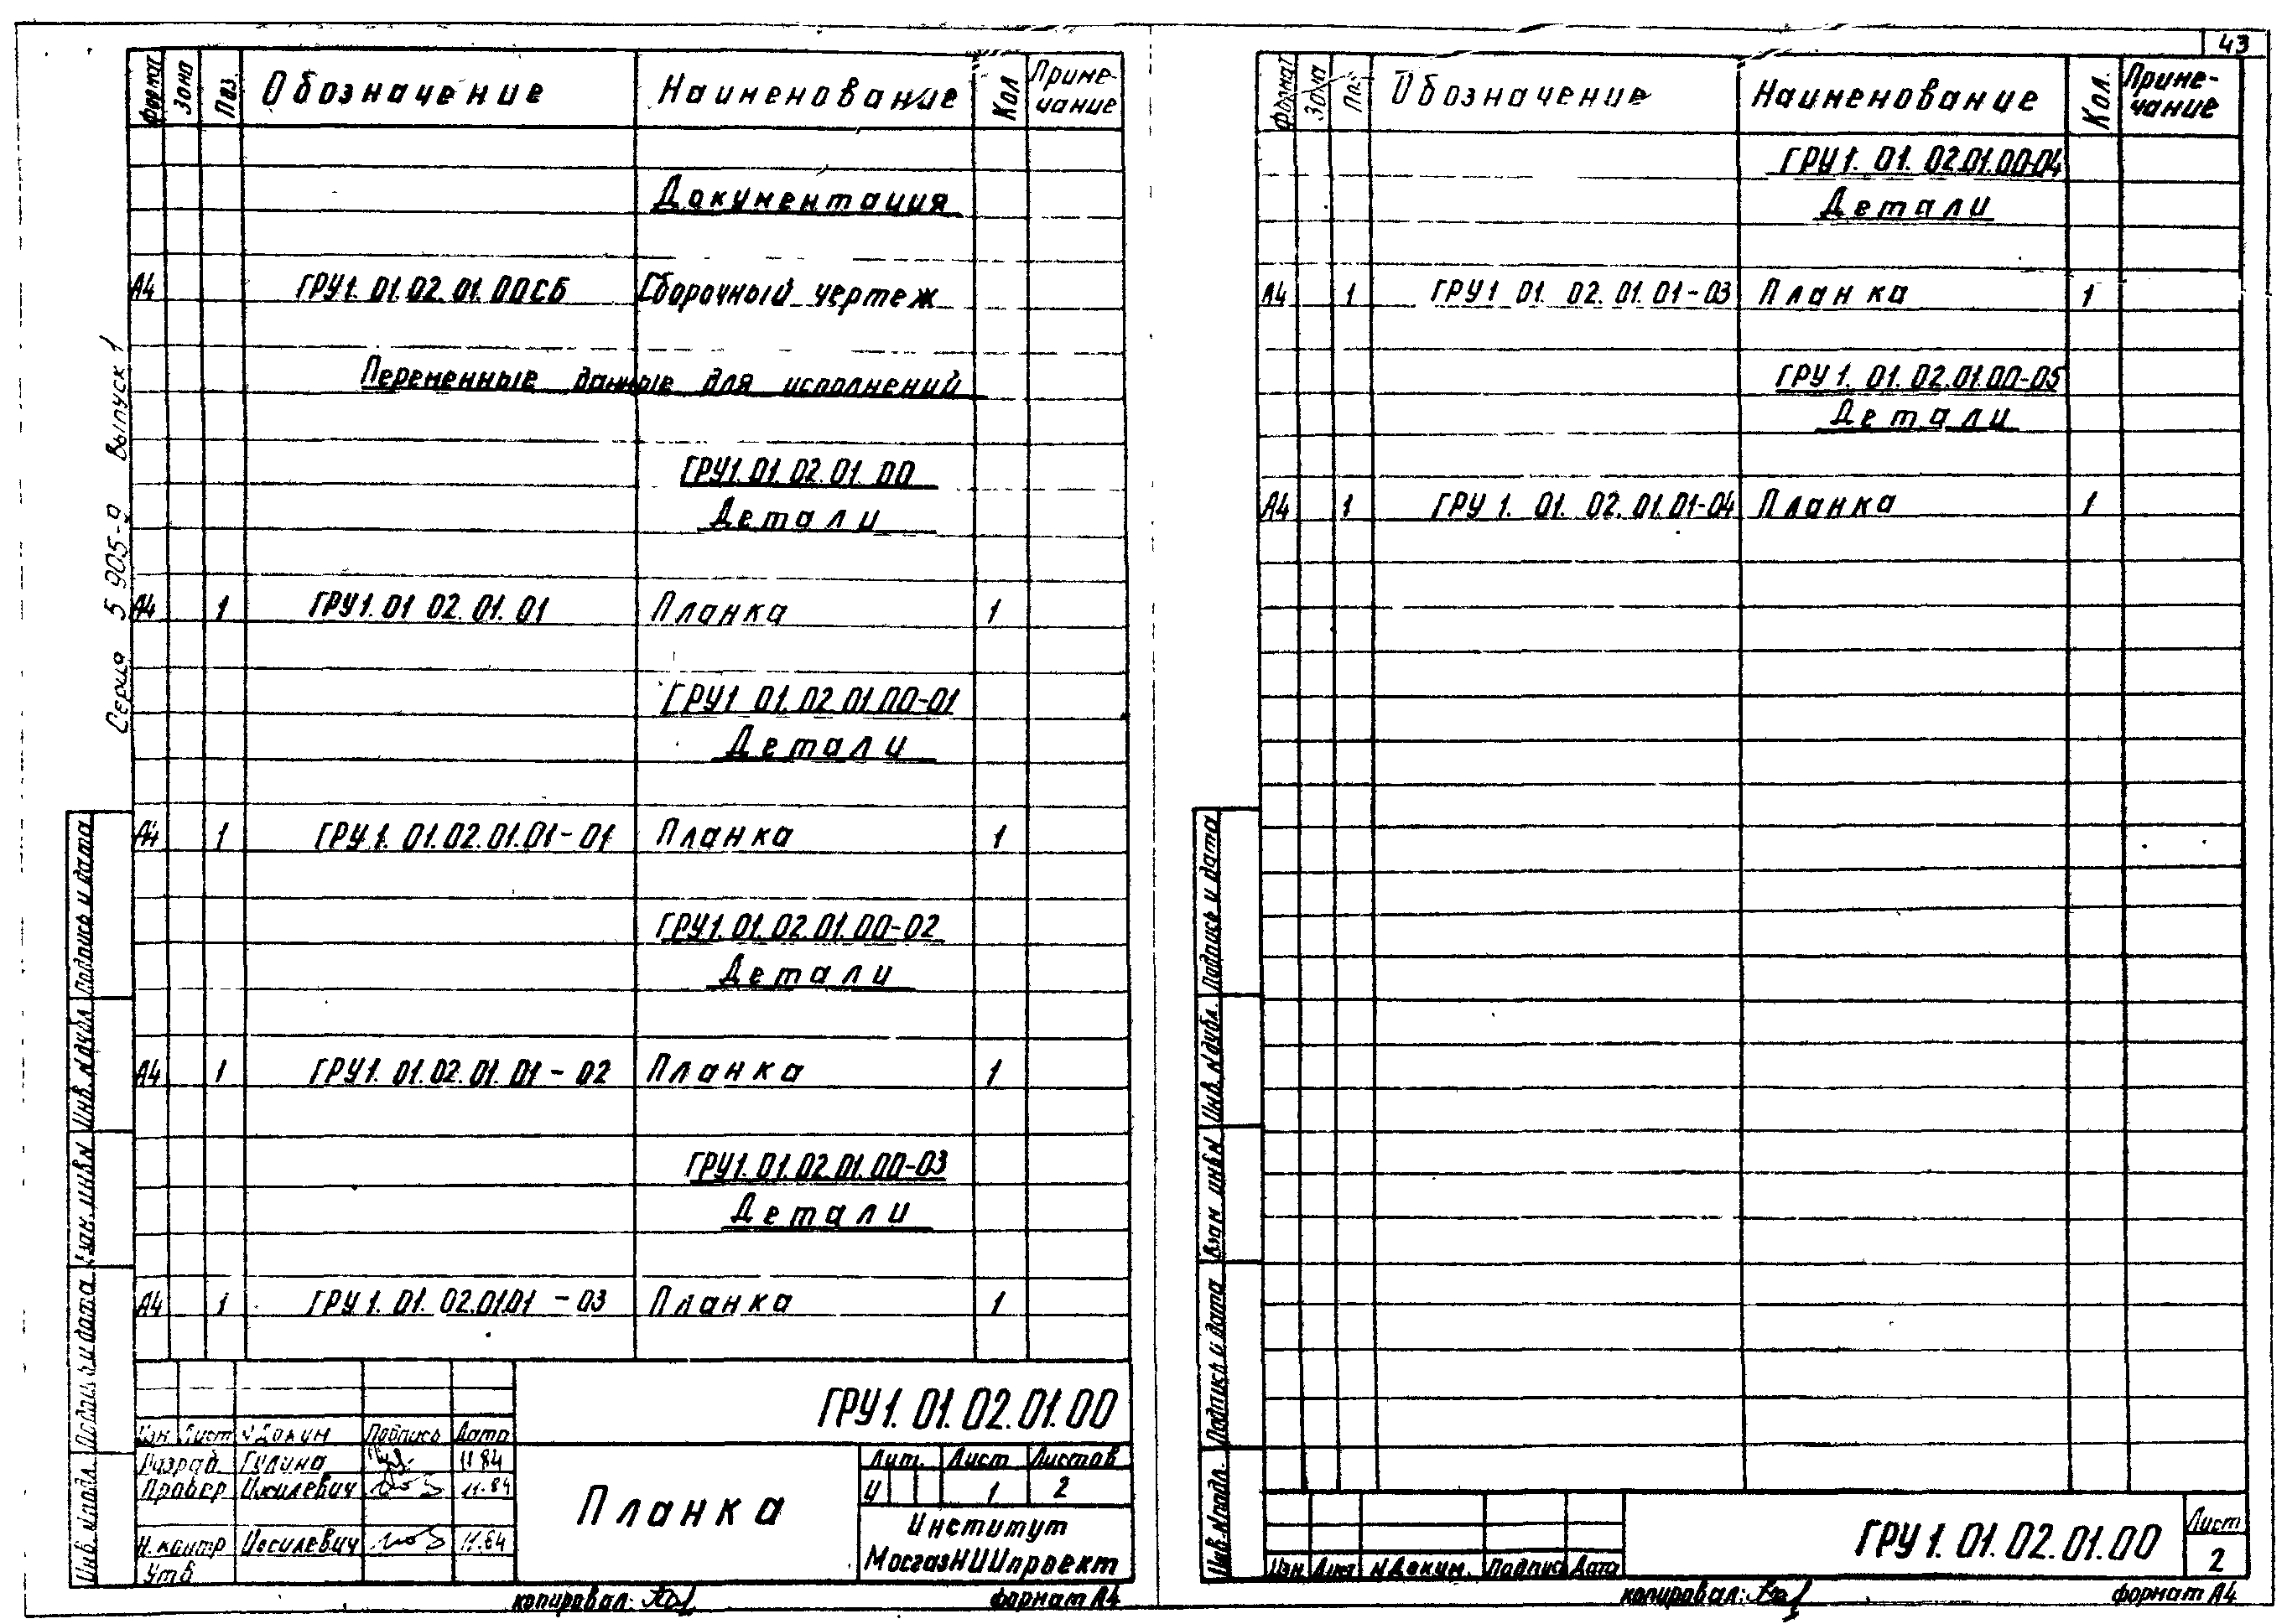 43
Серия 5 905-9 Выпуск 1
Формат Зона Поз. Обозначение Наименование Кол Приме-
чание
Документация
А4 ГРУ1. 01.02.01.00СБ Сборочный чертеж
Переменные данные для исполнений
ГРУ1.01.02.01.00
Детали
А4 1 ГРУ1.01 02.01.01 Планка 1
ГРУ1 01.02 01.00-01
Детали
А4 1 ГРУ1. 01.02.01.01-01 Планка 1
ГРУ1.01.02.01.00-02
Детали
А4 1 ГРУ1. 01.02.01.01-02 Планка 1
ГРУ1.01.02.01.00-03
Детали
А4 1 ГРУ1.01.02.01.01-03 Планка 1
ГРУ1. 01.02.01.00
Изм Лист № Докум Подпись Дата
Разраб. Гулина 11 84
Провер Иосилевич 11.84
Н.контр Иосилевич 11.84
Утв
Планка
Лит. Лист Листов
И 1 2
Институт
МосгазНИИпроект
копировал:
формат А4
Подпись и дата
Инв. № дубл.
Взам. инв №
Подпись и дата
Инв. № подл.
Формат Зона Поз. Обозначение Наименование Кол. Приме-
чание
ГРУ1. 01. 02.01.00-04
Детали
А4 1 ГРУ1 01. 02. 01. 01-03 Планка 1
ГРУ1. 01. 02.01.00-05
Детали
А4 1 ГРУ1. 01. 02. 01.01-04 Планка 1
Подпись и дата
Инв. № дубл.
Взам инв №
Подпись и дата
Инв. № подл.
Изм Лист № Докум. Подпись Дата
ГРУ1. 01.02.01.00
Лист
2
копировал:
формат А4